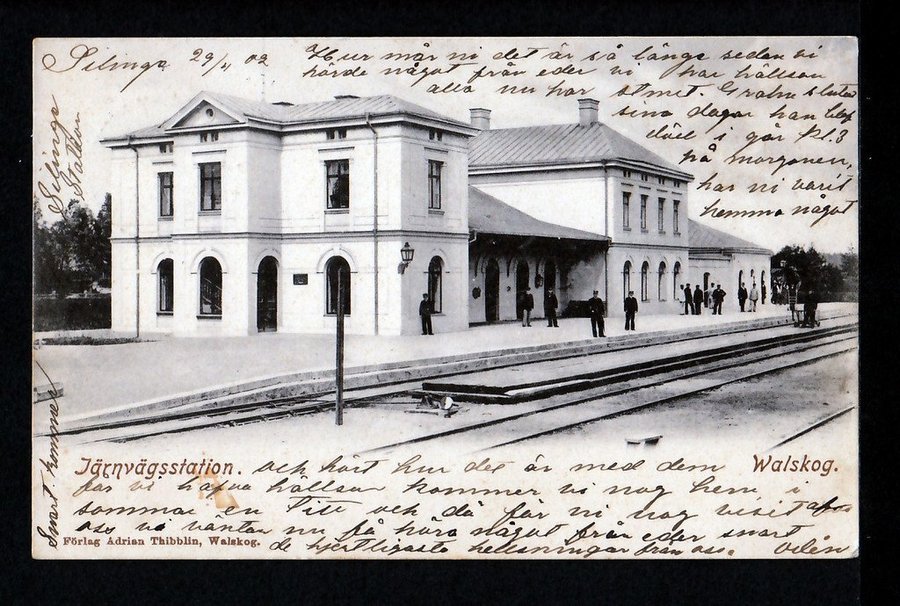 Silinge 29/11 02
Hur mår ni det är så länge sedan vi
hörde något från eder vi har hällsan
alla nu har stmet. Graha slutar
sina dagar han
i går kl. 3
på morgonen,
har ni varit
hemma något
Silinge
Stattion
Snart kommer
Järnvägsstation.
Walskog.
och hört hur det är med dem
får vi hafva hällsan kommer vi nog hem i
sommar en Titt och då får ni nog visit af
oss vi väntar nu få höra något från eder snart
de hjertligaste hellsningar från oss.
Förlag Adrian Thibblin, Walskog.